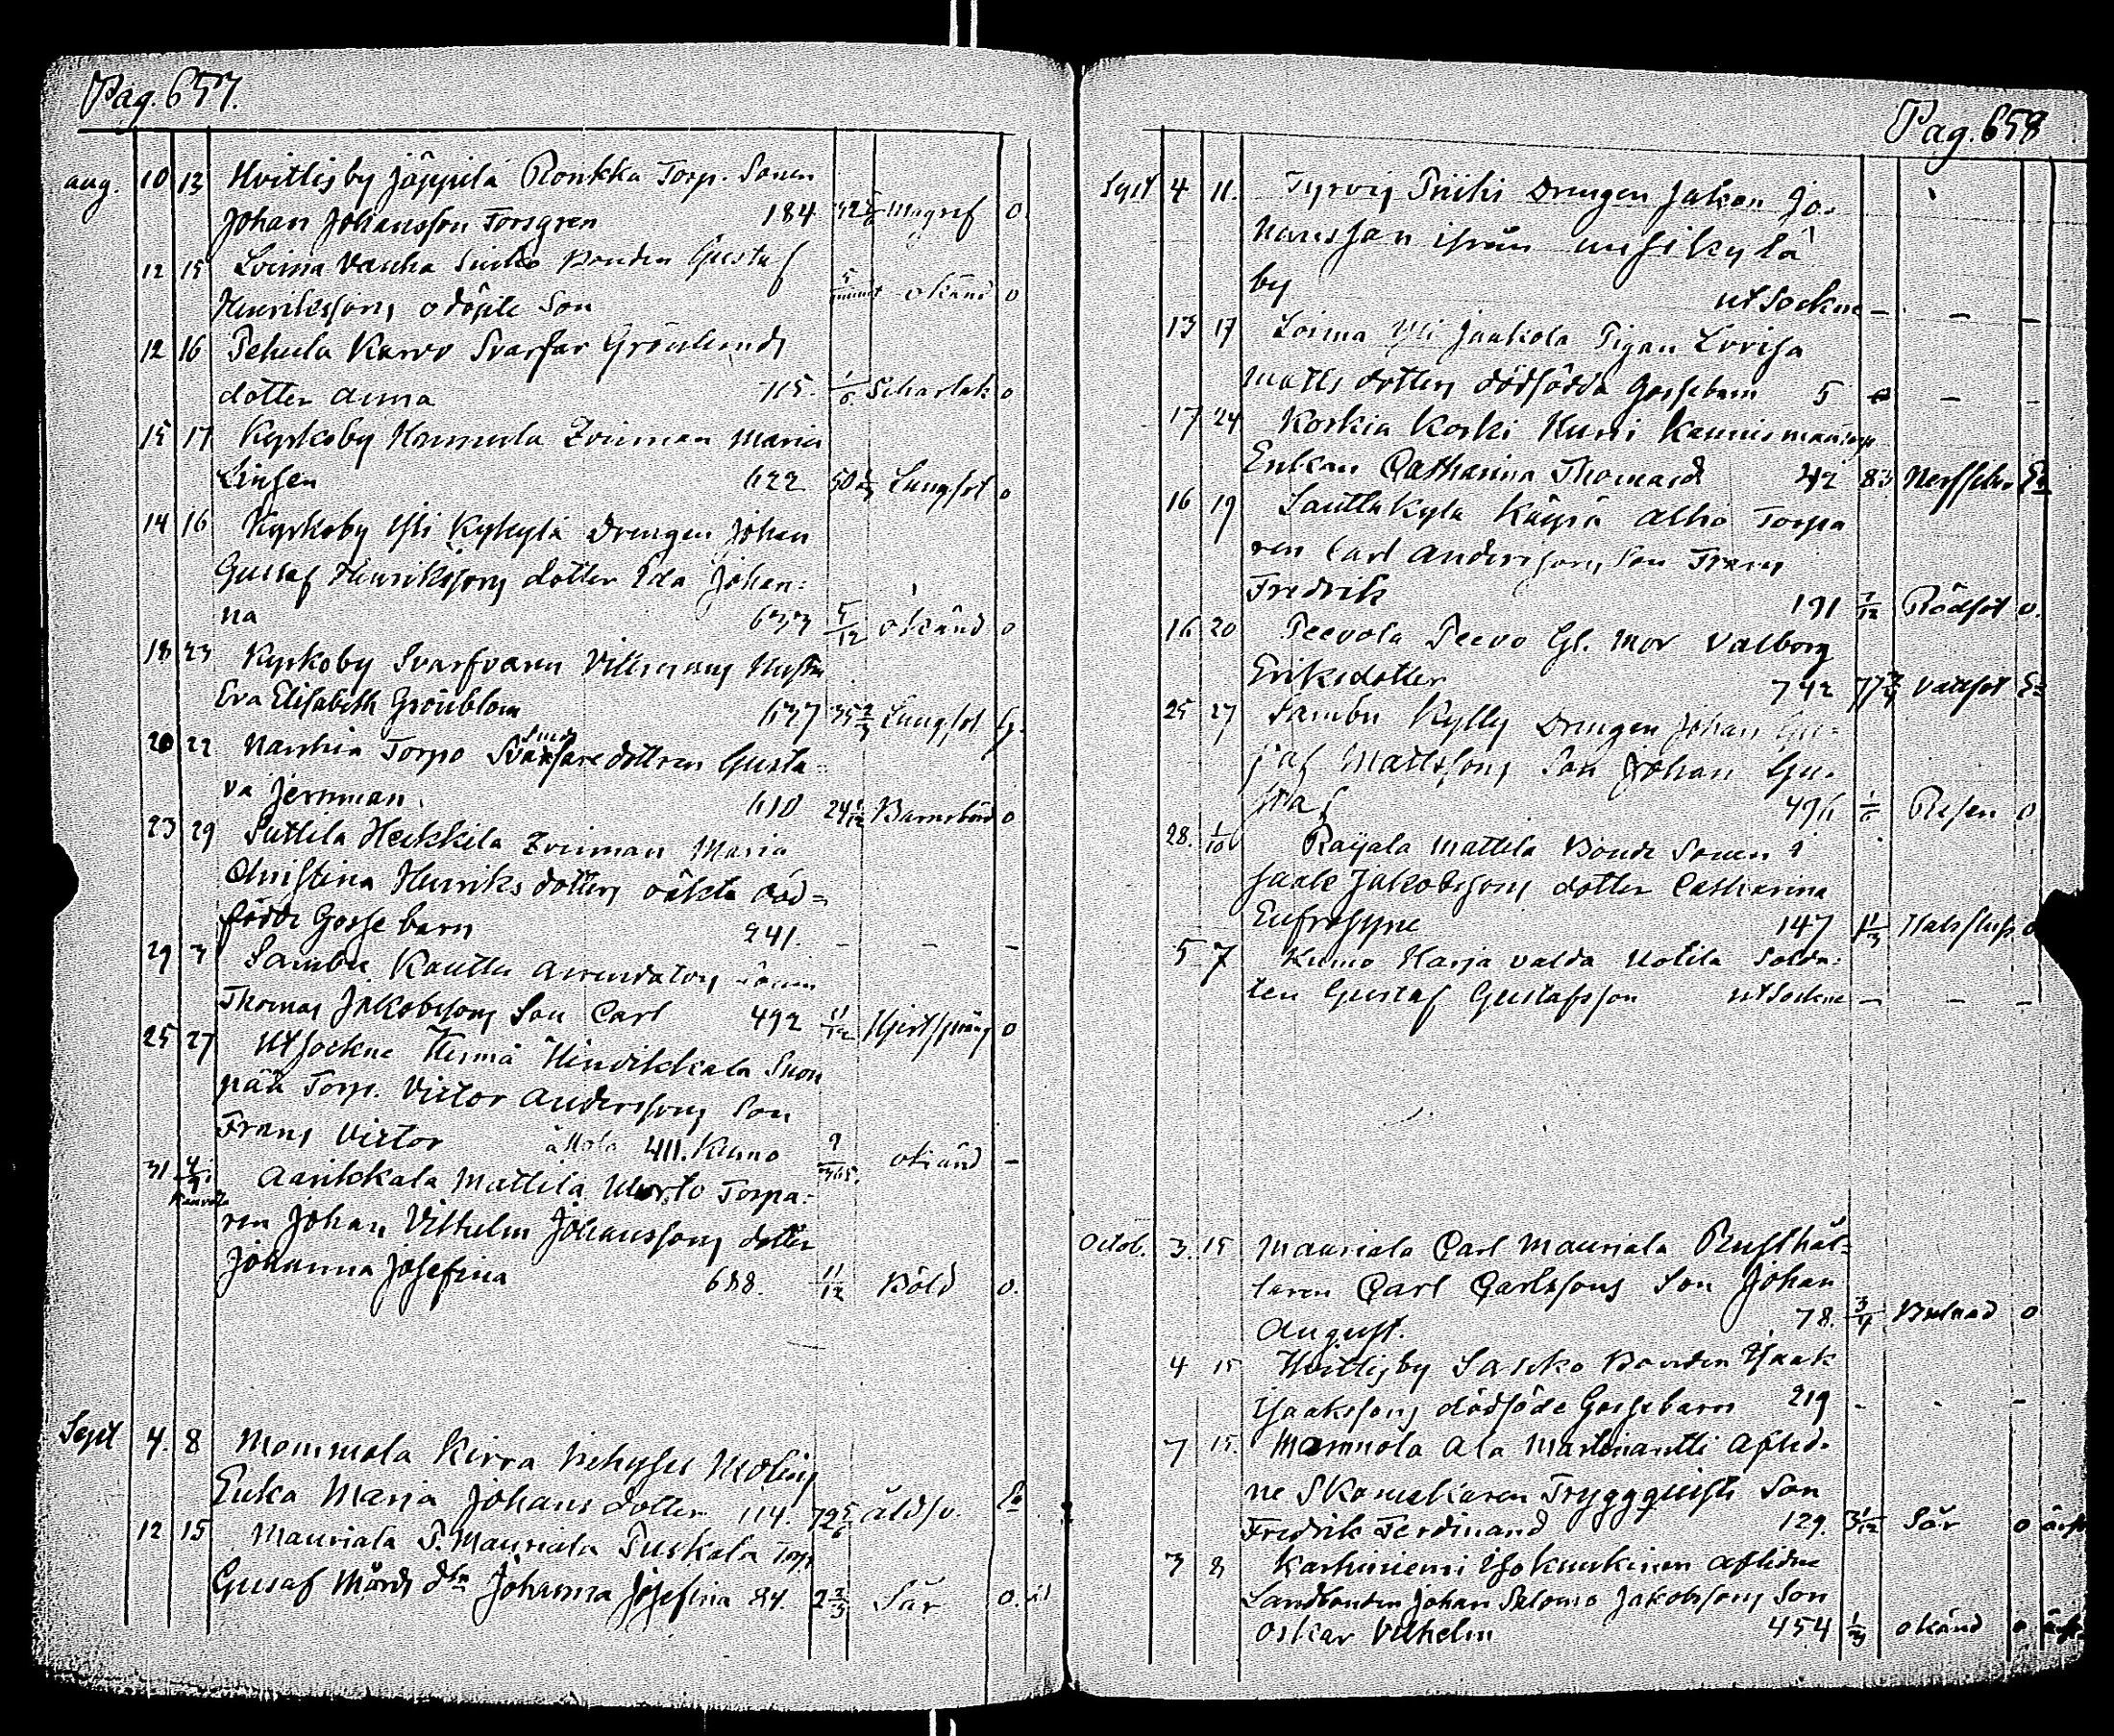 Pag. 657.
aug. 10 13 Hvittisby Jöppilä Ronkka Torp. Sonen
Johan Johansson Forsgren 184 Magref 0
12 15 Loima Bonden Gustaf
Henrikssons odöpte Son 5 okänd 0
12 16 Pehula Karvo Svarfar Grönlunds
dotter Anna 715. Scharlak 0
15 17 Kyrkoby Hannula Zvinnan Maria
Linsen 622 50 Lungsot 0
14 16 Kyrkoby Yli Kyhylä Drengen Johan
Gustaf Henrikssons dotter Ida Johan=
na 633 5/12 okänd 0
18 23 Kyrkoby Svarfvaren Hustru
Eva Elisabeth Grönblom 627 35 2/3 Lungsot G.
20 22 Naukia Torpo Smed Svarfvaredottren Gusta=
va Jernman. 610 24 Barnsbörd 0
23 29 Suttila Heikkila Zvinnan Maria
Christina Henriksdotters oäkta död=
födde Gossebarn 241. - - -
29 3 Sambu Kauttu Arrendators
Thomas Jakobssons Son Carl 492 11/12 0
25 27 Utsockne Huima Hinrikkala Suon
pää Torp. Victor Anderssons Son
Frans Victor 411. Kumo 9/365. okänd -
31 4/9 Aarikkala Mattila Torpa=
ren Johan Vilhelm Johanssons dotter
Johanna Josefina 688. 11/12 Böld 0.
Sept 4. 8 Mommola Kirra
Enka Maria Johansdotter 114. 72 5/6 åldv. E
12 15 Mauriala P. Mauriala Puskala Torp
Gustaf dtr Johanna Josefina 84. 2 2/3 Sår 0.
Pag. 658
Sept 4 11. Tyrvis Piihi Drengen Jakob Jo=
hansson ifrån
by utsockne - - -
13 17 Loima Yli Jaakola Pigan Lovisa
Matts dotters dödfödda Gossebarn 5 - -
17 24 Koskia Koski Hurri
Enkan Catharina Thomasd 42 83 E
16 19 Sauttakyla Käyrä Alho Torpa
ren Carl Anderssons Son Frans
Fredrik 191 7/12 Rödsot 0.
16 20 Peevola Peevo Gl. Mor Valborg
Eriksdotter 742 77 Vattsot E
25 27 Sambu Kylly Drengen Johan Gu=
staf Mattssons Son Johan Gu=
staf 476 Rosen 0
28. 1/10 Raijala Mattila Bonde Sonen I
saak Jakobssons dotter Catharina
Eufrosyne 147 Halsfluss 0
5 7 Kumo Harjavalda Uotila Solda=
ten Gustaf Gustafsson utsockne - - -
Octob. 3. 15 Mauriala Carl Mauriala Rusthål=
laren Carl Carlssons Son Johan
August. 78. 3/4 0
4 15 Hvittisby Sasiko Bonden Isaak
Isaakssons dödföde Gossebarn 219 - - -
7 15. Mommola Ala Martinantti Aflid=
ne Skomakaren Tryggquists Son
Fredrik Ferdinand 129. 3 1/12 Sår 0
3 8 Karhiniemi Isokuukinen Aflidne
Landbonden Johan Salomo Jakobssons Son
Oskar Vilhelm 454 1/3 okänd 0